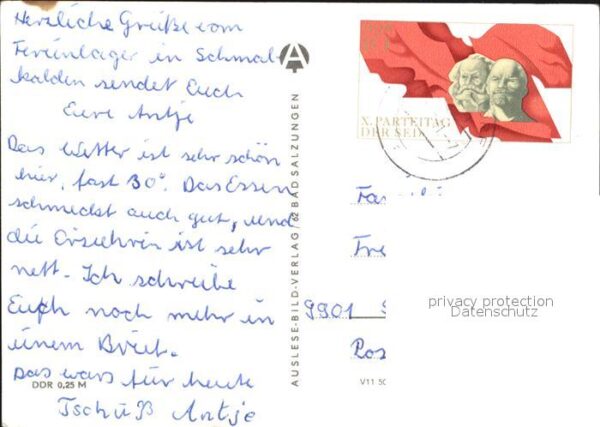 Herzliche Grüße vom
Ferienlager in Schmal-
kalden sendet Euch
Eure Antje
Das Wetter ist sehr schön
hier, fast 30°. Das Essen
schmeckt auch gut, und
die Erzieherin ist sehr
nett. Ich schreibe
Euch noch mehr in
einem Brief.
Das wars für heute
Tschüß Antje
DDR 0,25 M
AUSLESE-BILD-VERLAG / 62 BAD SALZUNGEN
A
X. PARTEITAG
DER SED
9901
privacy protection
Datenschutz
V11 50